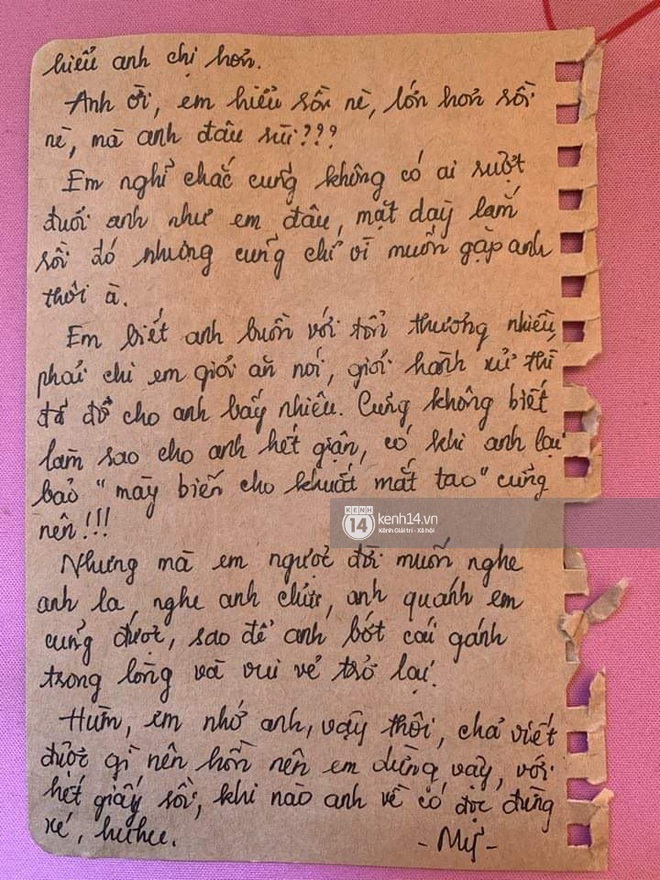 hiểu anh chị hơn.
Anh ơi, em hiểu rồi nè, lớn hơn rồi
nè, mà anh đâu rùi???
Em nghĩ chắc cũng không có ai rượt
đuổi anh như em đâu, mặt dày lắm
rồi đó nhưng cũng chỉ vì muốn gặp anh
thôi à.
Em biết anh buồn với tổn thương nhiều,
phải chi em giỏi ăn nói, giỏi hành xử thì
đã đỡ cho anh bấy nhiêu. Cũng không biết
làm sao cho anh hết giận, có khi anh lại
bảo "mày biến cho khuất mắt tao" cũng
nên!!!
KENH 14
kenh14.vn
Kênh Giải trí - Xã hội
Nhưng mà em ngược đời muốn nghe
anh la, nghe anh chửi, anh quánh em
cũng được, sao để anh bớt cái gánh
trong lòng và vui vẻ trở lại.
Hừm, em nhớ anh, vậy thôi, chả viết
được gì nên hồn nên em dừng vậy, với
hết giấy rồi, khi nào anh về có đọc đừng
xé, huhu.
- Mỹ -